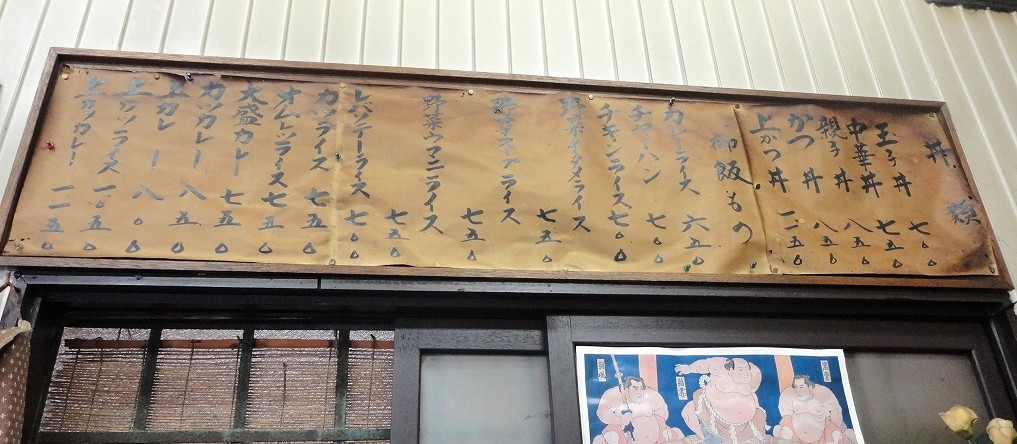 丼類
玉子丼 七〇〇
中華丼 七五〇
親子丼 八五〇
かつ丼 八五〇
上かつ丼 一一五〇
御飯もの
カレーライス 六五〇
チャーハン 七〇〇
チキンライス 七〇〇
野菜イタメライス 七五〇
野菜スープライス 七五〇
野菜ウマニライス 七五〇
レバソテーライス 七〇〇
カツライス 七五〇
オムレツライス 七五〇
大盛カレー 七五〇
カツカレー 八五〇
上カレー 八〇〇
上カツライス 一〇五〇
上カツカレー 一一五〇